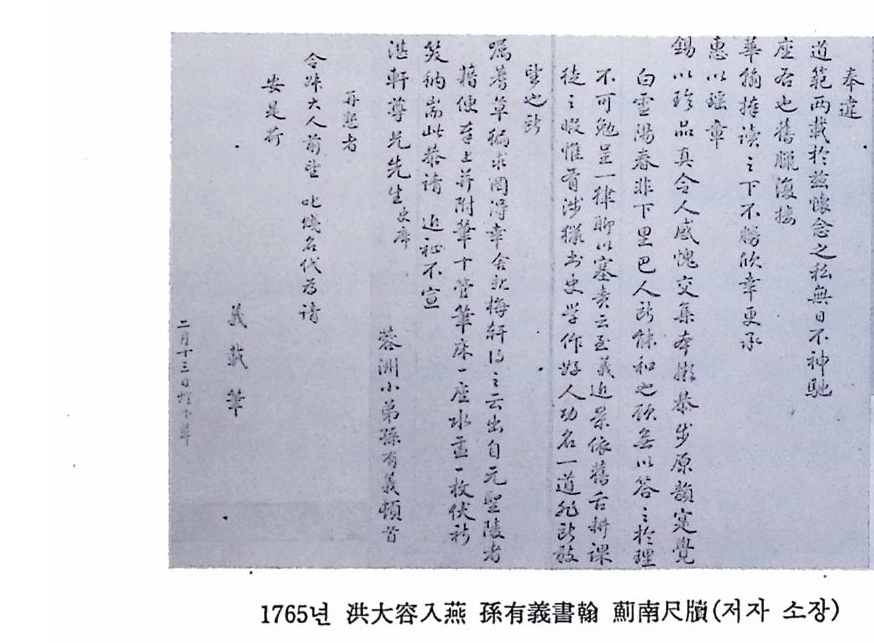 奉違
道範兩載於兹懷念之私無日不神馳
座右也舊臘復接
華翰捧讀之下不勝欣幸更承
惠以瑶章
錫以珍品真令人感愧交集本擬恭步原韻寔覺
白雪陽春非下里巴人所能和也欲無以答之於理
不可勉呈一律聊以塞責云至義近景依舊舌耕課
徒之暇惟有涉獵書史學作好人功名一道非所敢
望也所
囑蓍草徧求罔得幸舍親梅軒得之云出自元聖陵者
藉便奉上并附筆十管筆床一座水盂一枚伏祈
笑納耑此恭請 近祉不宣
湛軒尊兄先生史席 蓉洲小弟孫有義頓首
再懇者
令叔大人前望 叱賤名代為請
安是荷
義載筆
二月十三日燈下草
1765년 洪大容入燕 孫有義書翰 薊南尺牘(저자 소장)